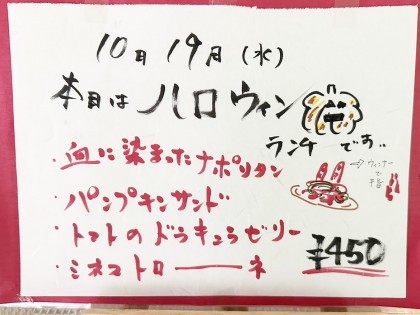 10月19日(水)
本日は ハロウィン
ランチです。
・血に染まったナポリタン
→ウィンナー
で
・パンプキンサンド
・トマトのドラキュラゼリー
・ミネストローーネ
¥450